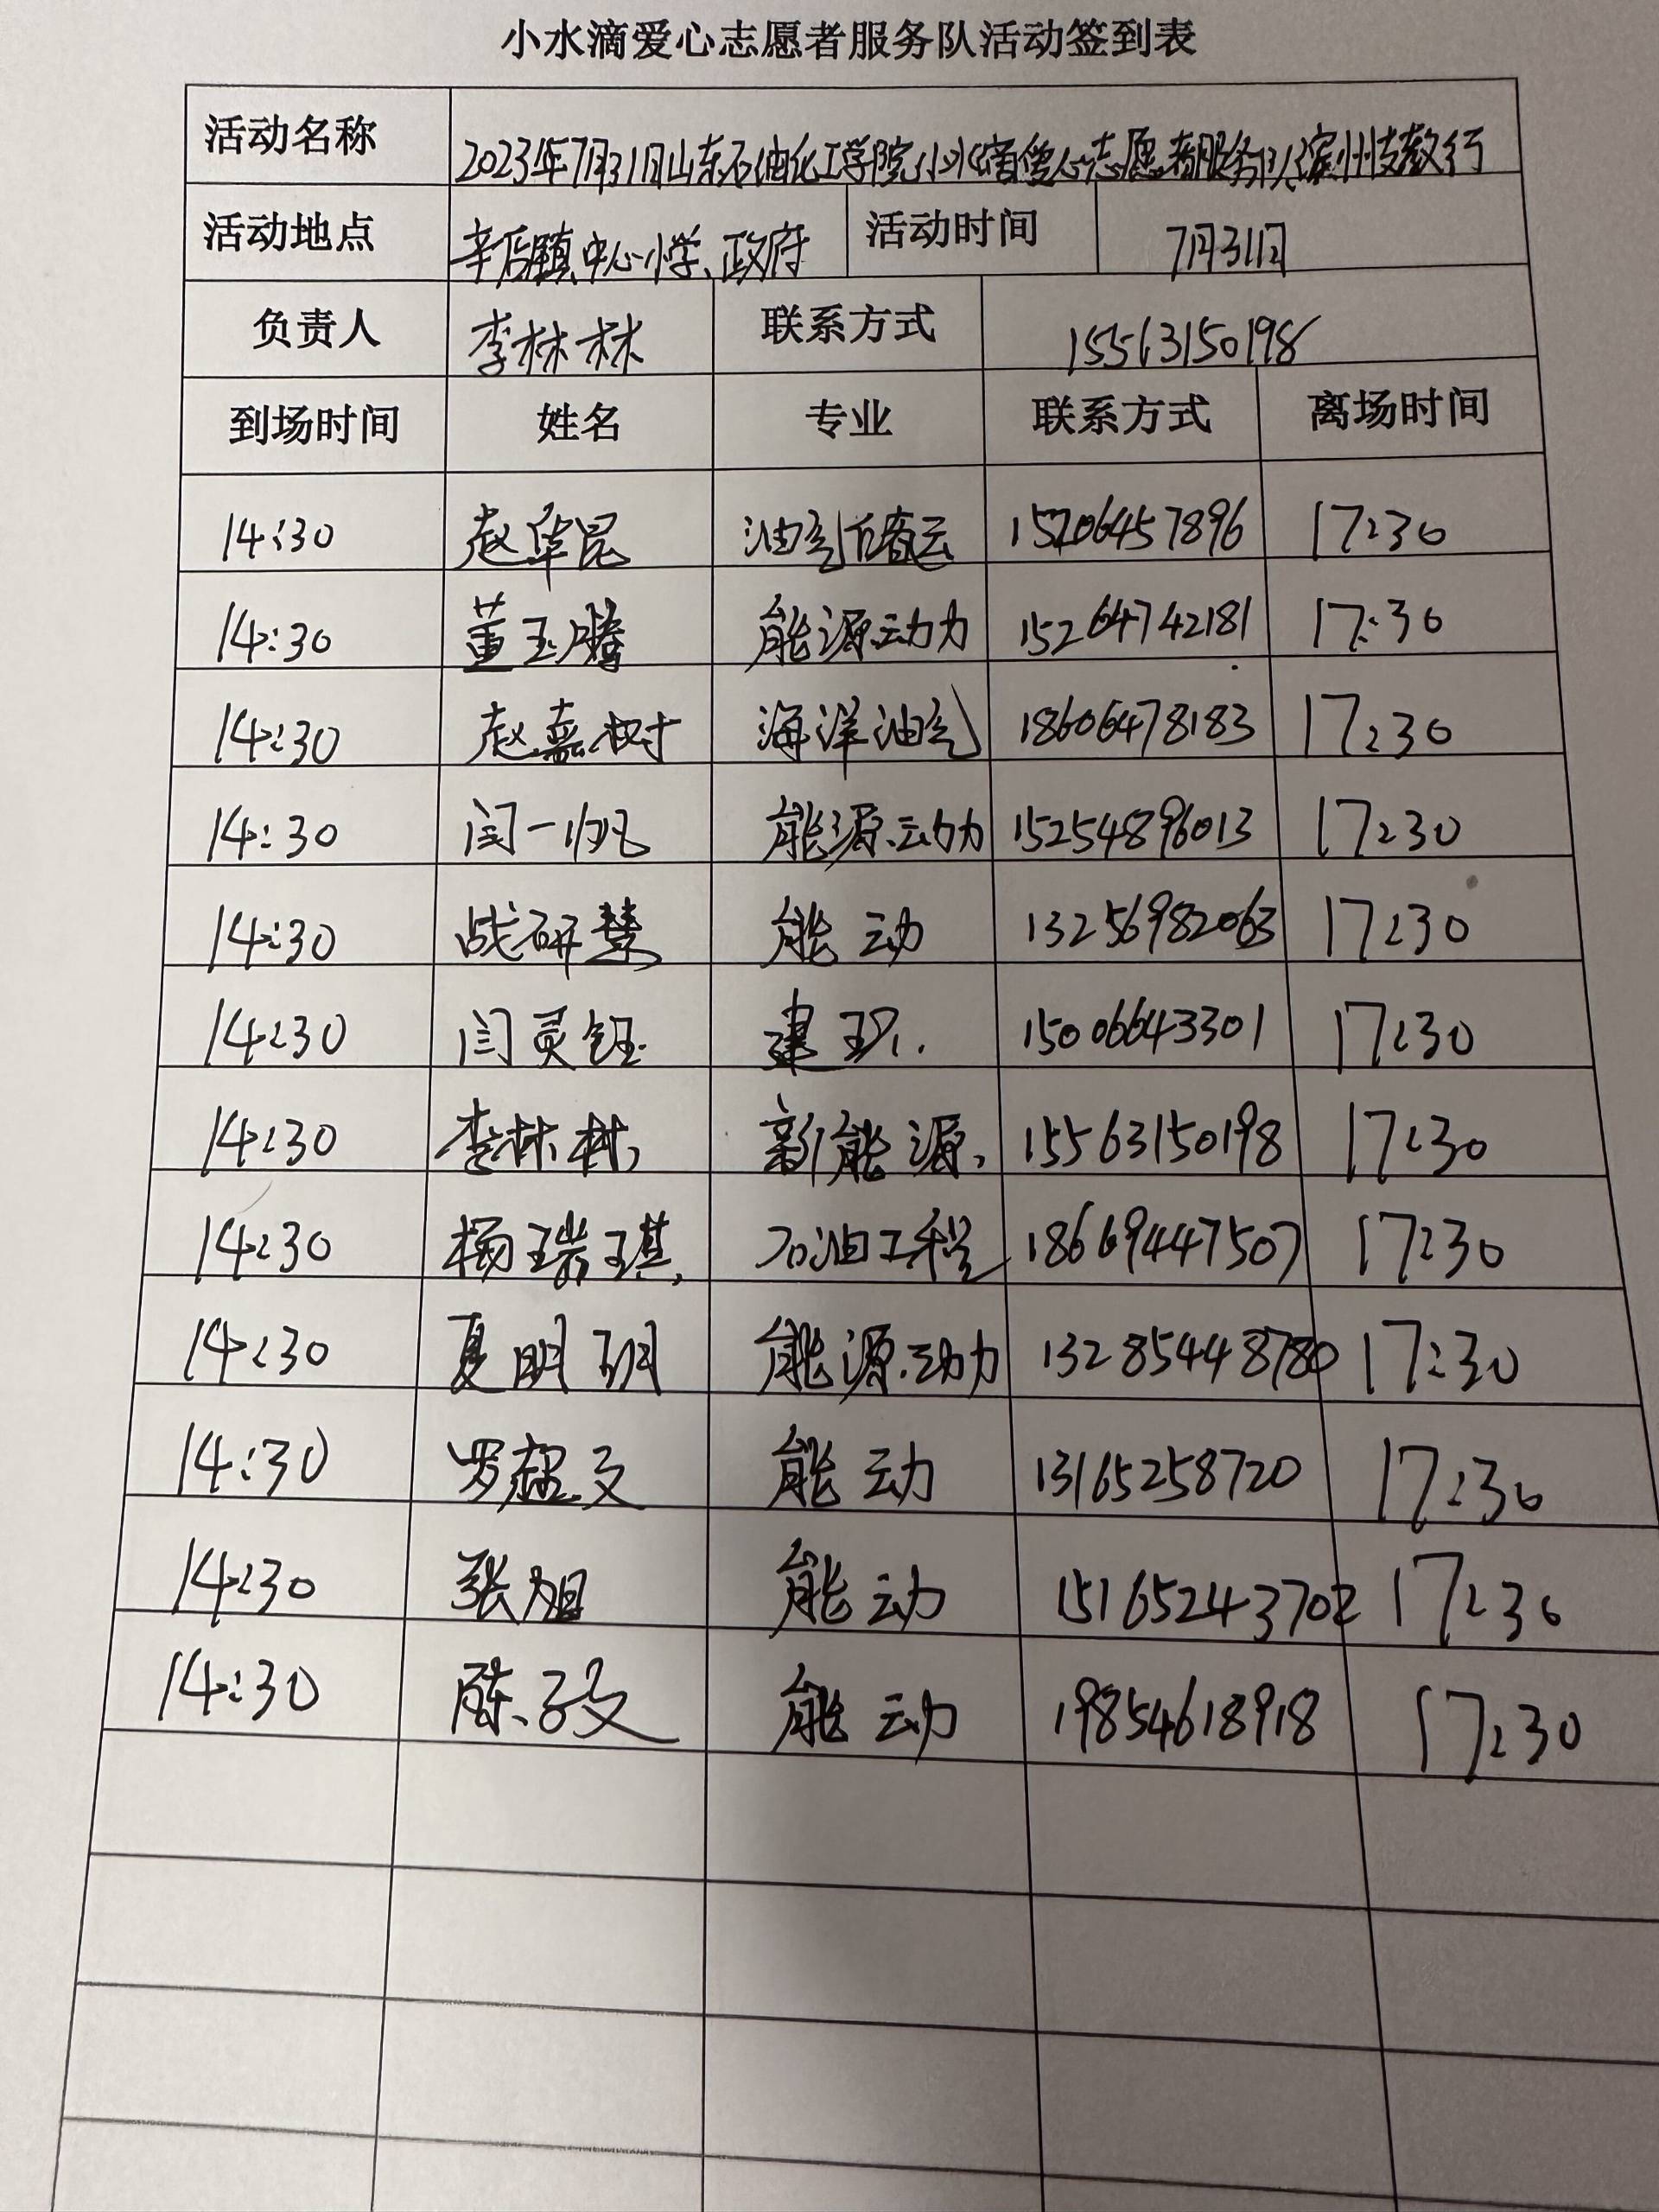 小水滴爱心志愿者服务队活动签到表
活动名称 2023年7月31日山东石油化工学院小水滴爱心志愿者服务队滨州支教行
活动地点 辛店镇中心小学、政府 活动时间 7月31日
负责人 李林林 联系方式 15563150198
到场时间 姓名 专业 联系方式 离场时间
14:30 赵华昆 油气储运 15206457896 17:30
14:30 董玉腾 能源动力 15264742181 17:30
14:30 赵嘉树 海洋油气 18606478183 17:30
14:30 闫一帆 能源动力 15254896013 17:30
14:30 战研慧 能动 13256982063 17:30
14:30 闫灵钰 建环 15006643301 17:30
14:30 李林林 新能源 15563150198 17:30
14:30 杨瑞琪 石油工程 18669447507 17:30
14:30 夏明玥 能源动力 13285448780 17:30
14:30 罗超文 能动 13165258720 17:30
14:30 张旭 能动 15165243702 17:30
14:30 陈子文 能动 19854618918 17:30